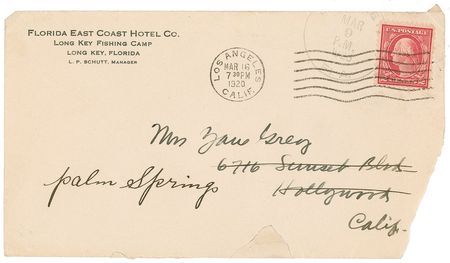 FLORIDA EAST COAST HOTEL CO.
LONG KEY FISHING CAMP
LONG KEY, FLORIDA
L. P. SCHUTT, MANAGER
LOS ANGELES
MAR 16
7 30 PM
1920
CALIF.
MAR
9
P.M.
Mrs Zane Grey
6716 Sunset Blvd
Palm Springs
Hollywood
Calif.